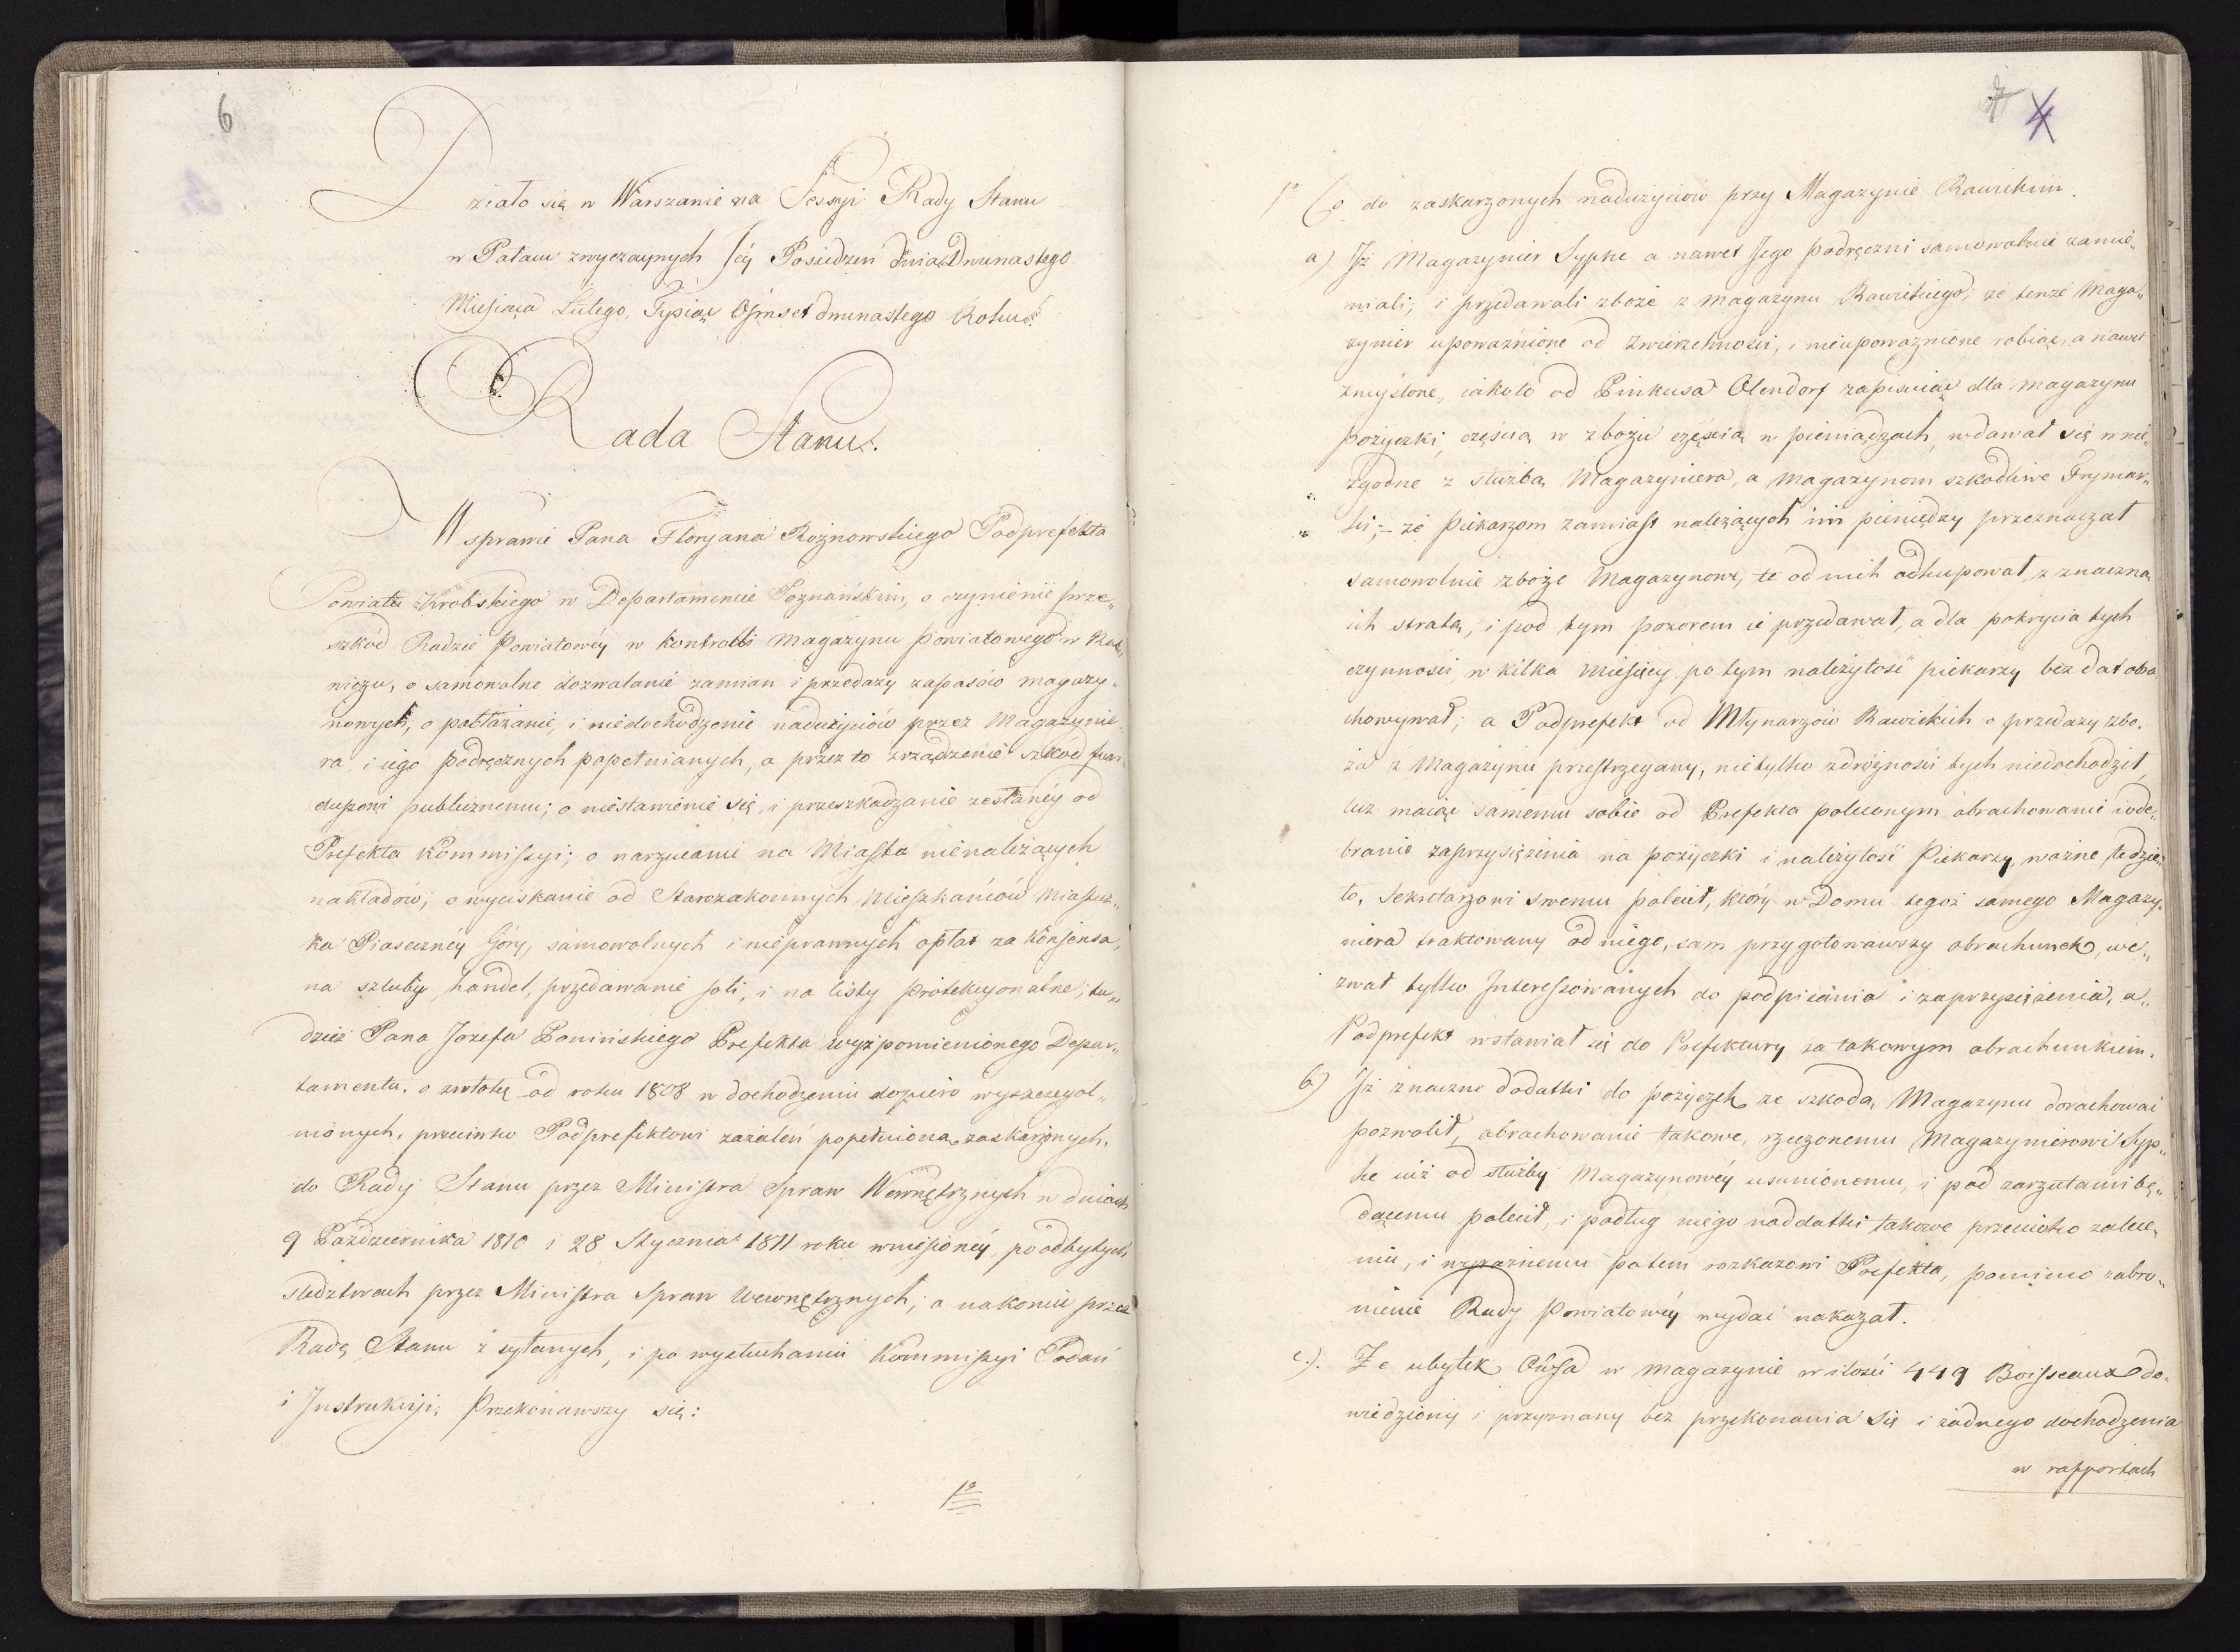 6
Działo się w Warszawie na Sessyi Rady Stanu
w Pałacu zwyczaynych Jéy Posiedzeń dnia Dwunastego
Miesiąca Lutego, Tysiąc Ośmset dwunastego Roku.
Rada Stanu.
W sprawie Pana Floryana Rożnowskiego Podprefekta
Powiatu Krobskiego w Departamencie Poznańskim, o czynienie prze„
szkód Radzie Powiatowéy w kontrolli Magazynu Powiatowego w Ra„
wiczu, o samowolne dozwalanie zamian i przedaży zapasów magazy„
nowych, o pobłażanie, i niedochodzenie nadużyciów przez Magazynie„
ra i iego podręcznych popełnianych, a przez to zrządzenie szkód fun„
duszowi publicznemu; o niestawienie się, i przeszkadzanie zesłanéy od
Prefekta Kommissyi; o narzucanie na Miasta nienależących
nakładów; o wyciskanie od Starozakonnych Mieszkańców Miastecz„
ka Piasecznéy Góry, samowolnych i nieprawnych opłat za konsensa,
na szluby, handel, przedawanie soli, i na listy protekcyonalne; tu„
dzież Pana Jozefa Ponińskiego Prefekta wyżpomienionego Depar„
tamentu, o zwłokę od roku 1808 w dochodzeniu dopiero wyszczegól„
nionych, przeciwko Podprefektowi zażaleń popełnioną, zaskarżonych,
do Rady Stanu przez Ministra Spraw Wewnętrznych w dniach
9 Października 1810 i 28 Stycznia 1811 roku wniesionéy, po odbytych
śledztwach przez Ministra Spraw Wewnętrznych, a nakoniec przez
Radę Stanu zsyłanych, i po wysłuchaniu Kommissyi Podań
i Instrukcyi, Przekonawszy się:
1º
7 4
1º Co do zaskarżonych nadużyciów przy Magazynie Rawickim.
a) Iż Magazynier Sypke a nawet Jego podręczni samowolnie zamie„
niali, i przedawali zboże z magazynu Rawickiego, że tenże Maga„
zynier upoważnione od Zwierzchności, i nieupoważnione robiąc, a nawet
zmyślone, iakoto od Pinkusa Olendorf zapisuiąc dla magazynu
pożyczki, częścią w zbożu częścią w pieniądzach, wdawał się w nie„
zgodne z służbą Magazyniera, a magazynom szkodliwe Frymar„
ki; – że Piekarzom zamiast należących im pieniędzy przeznaczał
samowolnie zboże Magazynowe, te od nich odkupował, z znaczną
ich stratą, i pod tym pozorem ie przedawał, a dla pokrycia tych
czynności w kilka miesięcy po tym należytość piekarzy bez dat obra
chowywał; a Podprefekt od Młynarzów Rawickich o przedaży zbo„
ża z Magazynu przestrzegany, nietylko zdróżności tych niedochodził,
lecz maiąc samemu sobie od Prefekta poleconym obrachowanie i ode„
branie zaprzysiężenia na pożyczki i należytość Piekarzy, ważne te dzie„
ło, Sekretarzowi swemu polecił, który w Domu tegoż samego Magazy„
niera traktowany od niego, sam przygotowawszy obrachunek, we„
zwał tylko Interessowanych do podpisania i zaprzysiężenia, a„
Podprefekt wstawiał się do Prefektury za takowym obrachunkiem.
b) Iż znaczne dodatki do pożyczek ze szkodą Magazynu dorachować
pozwolił, obrachowanie takowe, rzeczonemu Magazynierowi Syp„
ke iuż od służby Magazynowéy usunionemu, i pod zarzutami bę„
dącemu polecił, i podług niego naddatki takowe przeciwko zalece„
niu, i wyraźnemu potem rozkazowi Prefekta, pomimo zabro„
nienie Rady Powiatowéy wydać nakazał.
c.). Że ubytek Owsa w magazynie w ilości 449 Boisseaux do„
wiedziony i przyznany bez przekonania się i żadnego dochodzenia
w rapportach